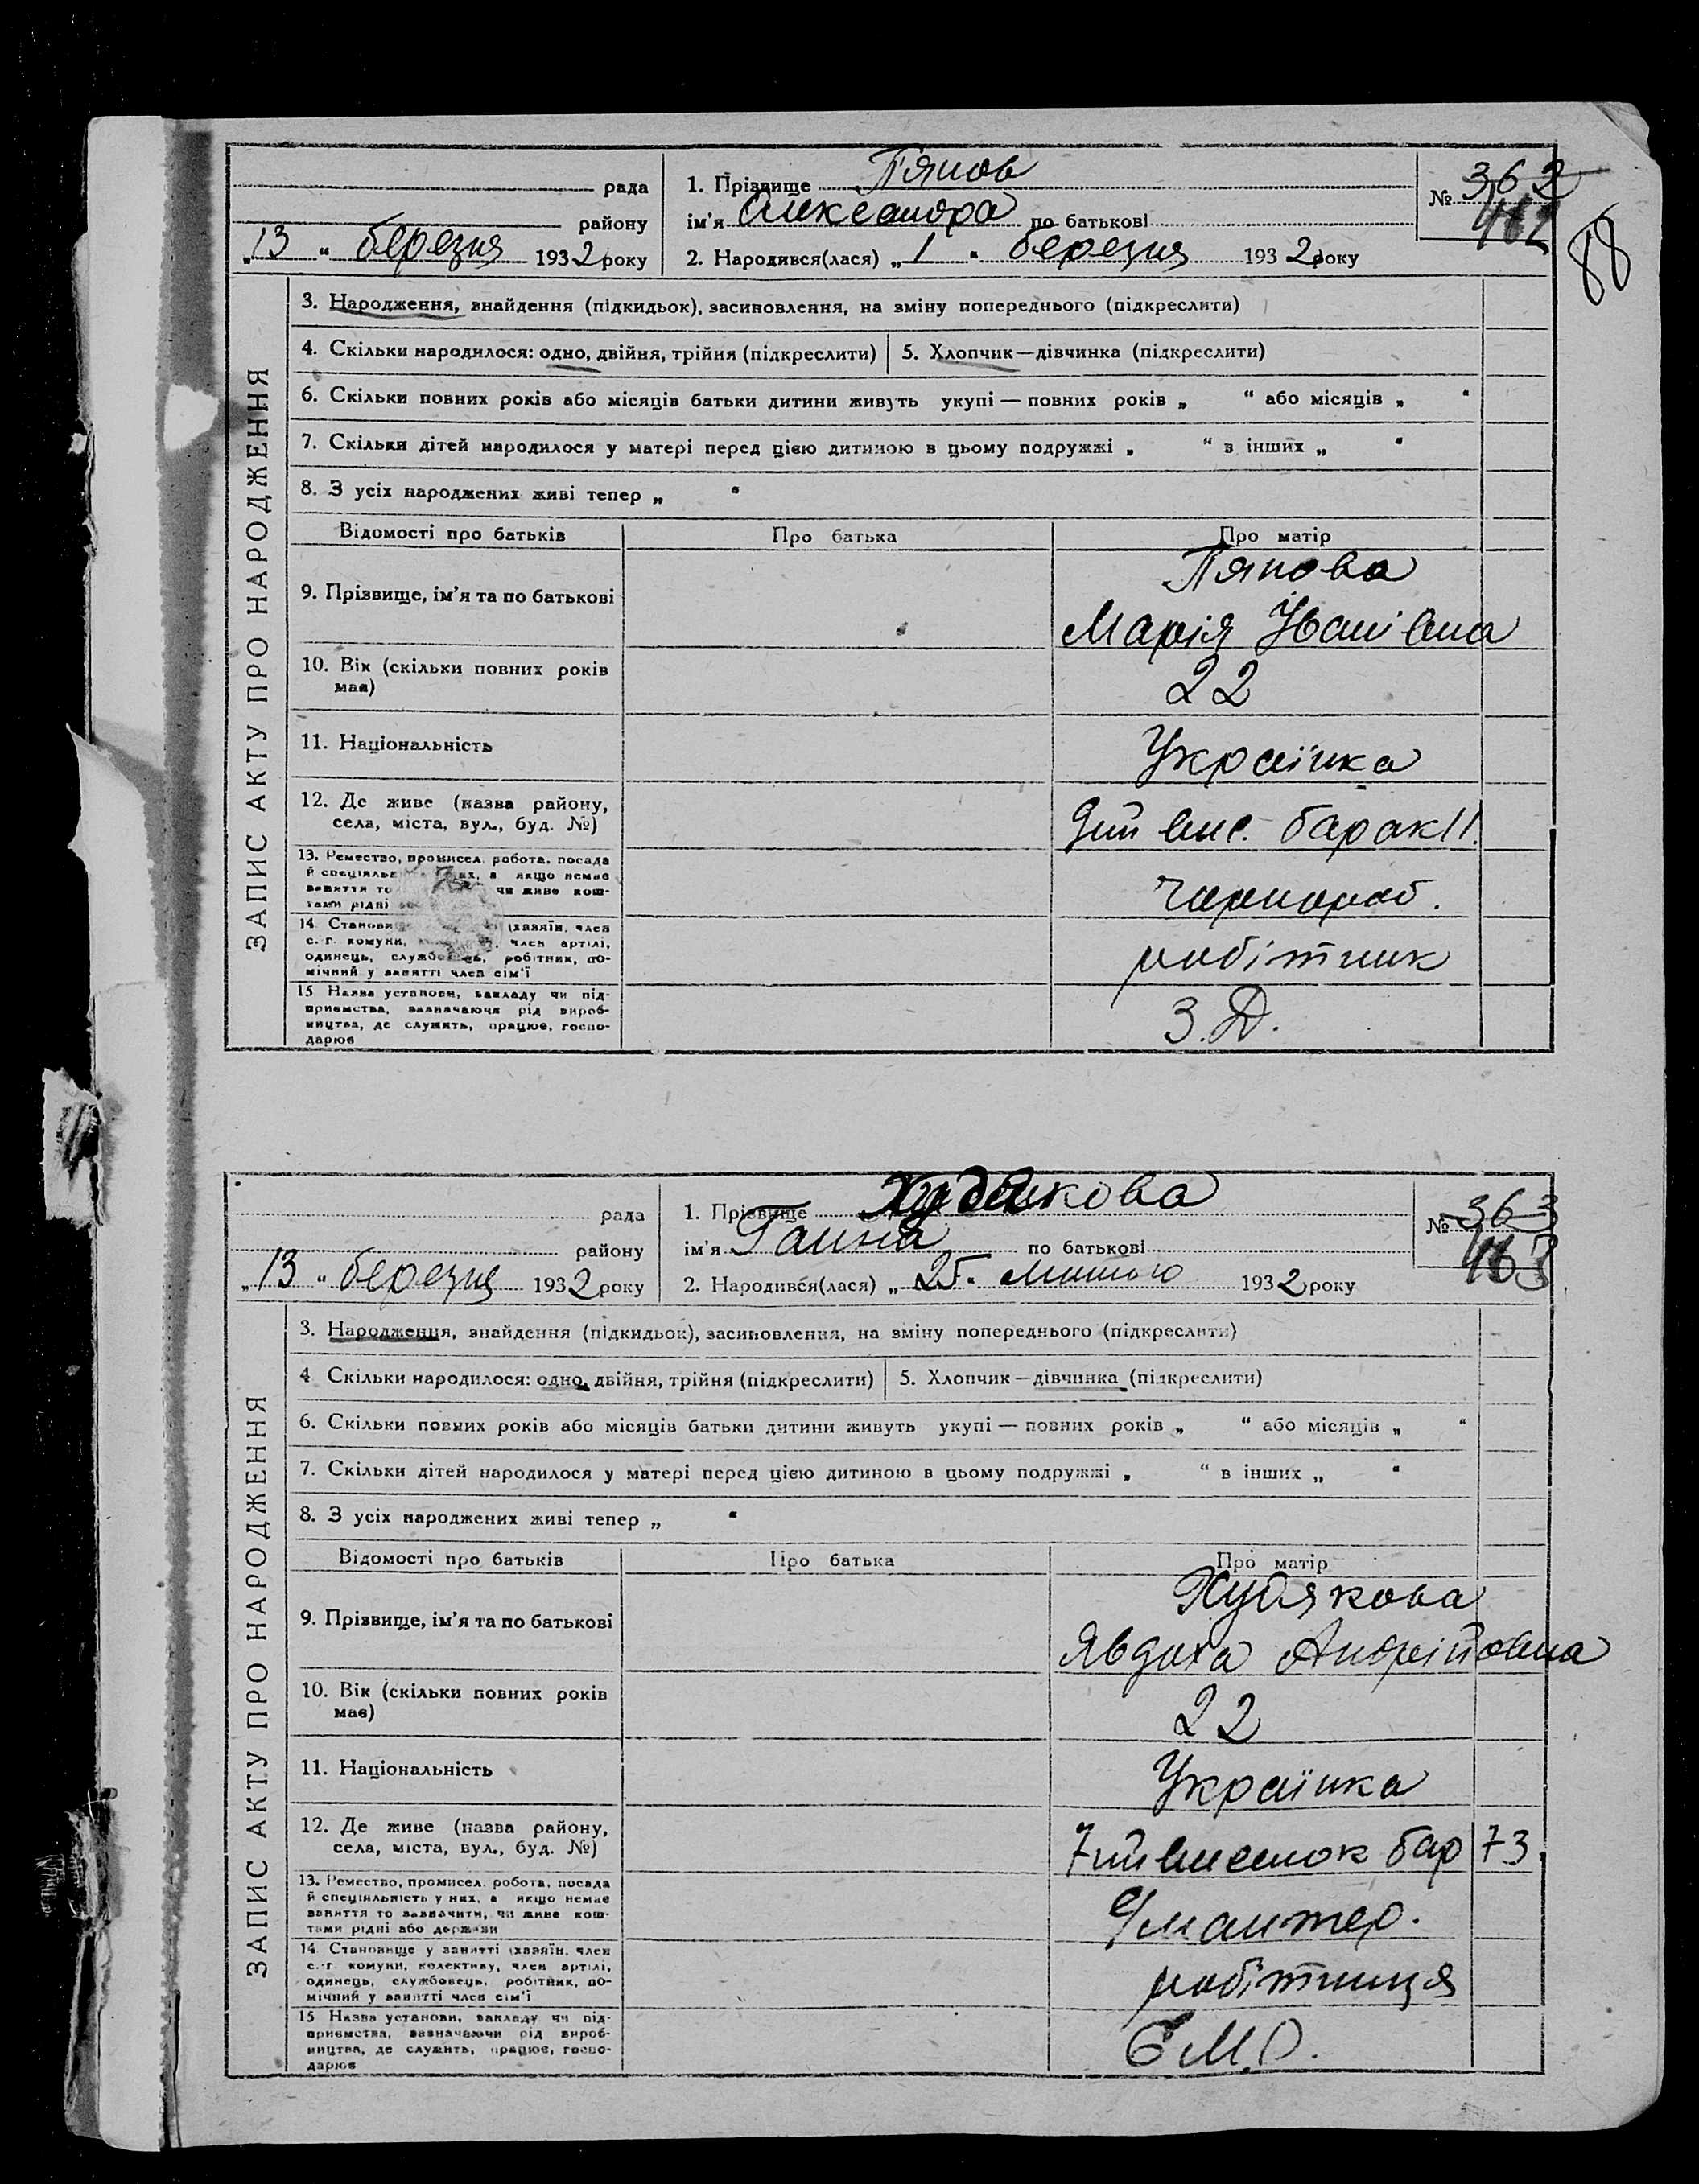 88
рада
району
„13“ березня 1932 року
1. Прізвище Пянов
ім’я Олександра по батькові
2. Народився(лася) „1“ березня 1932 року
№ 362
462
ЗАПИС АКТУ ПРО НАРОДЖЕННЯ
3. Народження, знайдення (підкидьок), засиновлення, на зміну попереднього (підкреслити)
4. Скільки народилося: одно, двійня, трійня (підкреслити) 5. Хлопчик—дівчинка (підкреслити)
6. Скільки повних років або місяців батьки дитини живуть укупі — повних років „ “ або місяців „ “
7. Скільки дітей народилося у матері перед цією дитиною в цьому подружжі „ “ в інших „ “
8. З усіх народжених живі тепер „ “
Відомості про батьків Про батька Про матір
9. Прізвище, ім’я та по батькові
Пянова
Марія Іванівна
10. Вік (скільки повних років
має)
22
11. Національність
Українка
12. Де живе (назва району,
села, міста, вул., буд. №)
барак 11.
13. Ремество, промисел, робота, посада
й спеціальн них, а якщо немає
заняття то чи живе кош-
тами рідні
чорнороб.
14. Станови (хазяїн, член
с.-г. комуни, член артілі,
одинець, службовець, робітник, по-
мічний у занятті член сім’ї
робітник
15. Назва установи, закладу чи під-
приємства, зазначаючи рід вироб-
ництва, де служить, працює, госпо-
дарює
З. Д.
рада
району
„13“ березня 1932 року
1. Прізвище Худякова
ім’я Ганна по батькові
2. Народився(лася) „25“ лютого 1932 року
№ 363
463
ЗАПИС АКТУ ПРО НАРОДЖЕННЯ
3. Народження, знайдення (підкидьок), засиновлення, на зміну попереднього (підкреслити)
4 Скільки народилося: одно, двійня, трійня (підкреслити) 5. Хлопчик—дівчинка (підкреслити)
6. Скільки повних років або місяців батьки дитини живуть укупі — повних років „ “ або місяців „ “
7. Скільки дітей народилося у матері перед цією дитиною в цьому подружжі „ “ в інших „ “
8. З усіх народжених живі тепер „ “
Відомості про батьків Про батька Про матір
9. Прізвище, ім’я та по батькові
Худякова
Явдоха Андрійовна
10. Вік (скільки повних років
має)
22
11. Національність
Українка
12. Де живе (назва району,
села, міста, вул., буд. №)
7ий виселок бар 73.
13. Ремество, промисел, робота, посада
й спеціальність у них, а якщо немає
заняття то зазначити, чи живе кош-
тами рідні або держави
14. Становище у занятті (хазяїн, член
с.-г. комуни, колективу, член артілі,
одинець, службовець, робітник, по-
мічний у занятті член сім’ї
робітниця
15 Назва установи, закладу чи під-
приємства, зазначаючи рід вироб-
ництва, де служить, працює, госпо-
дарює